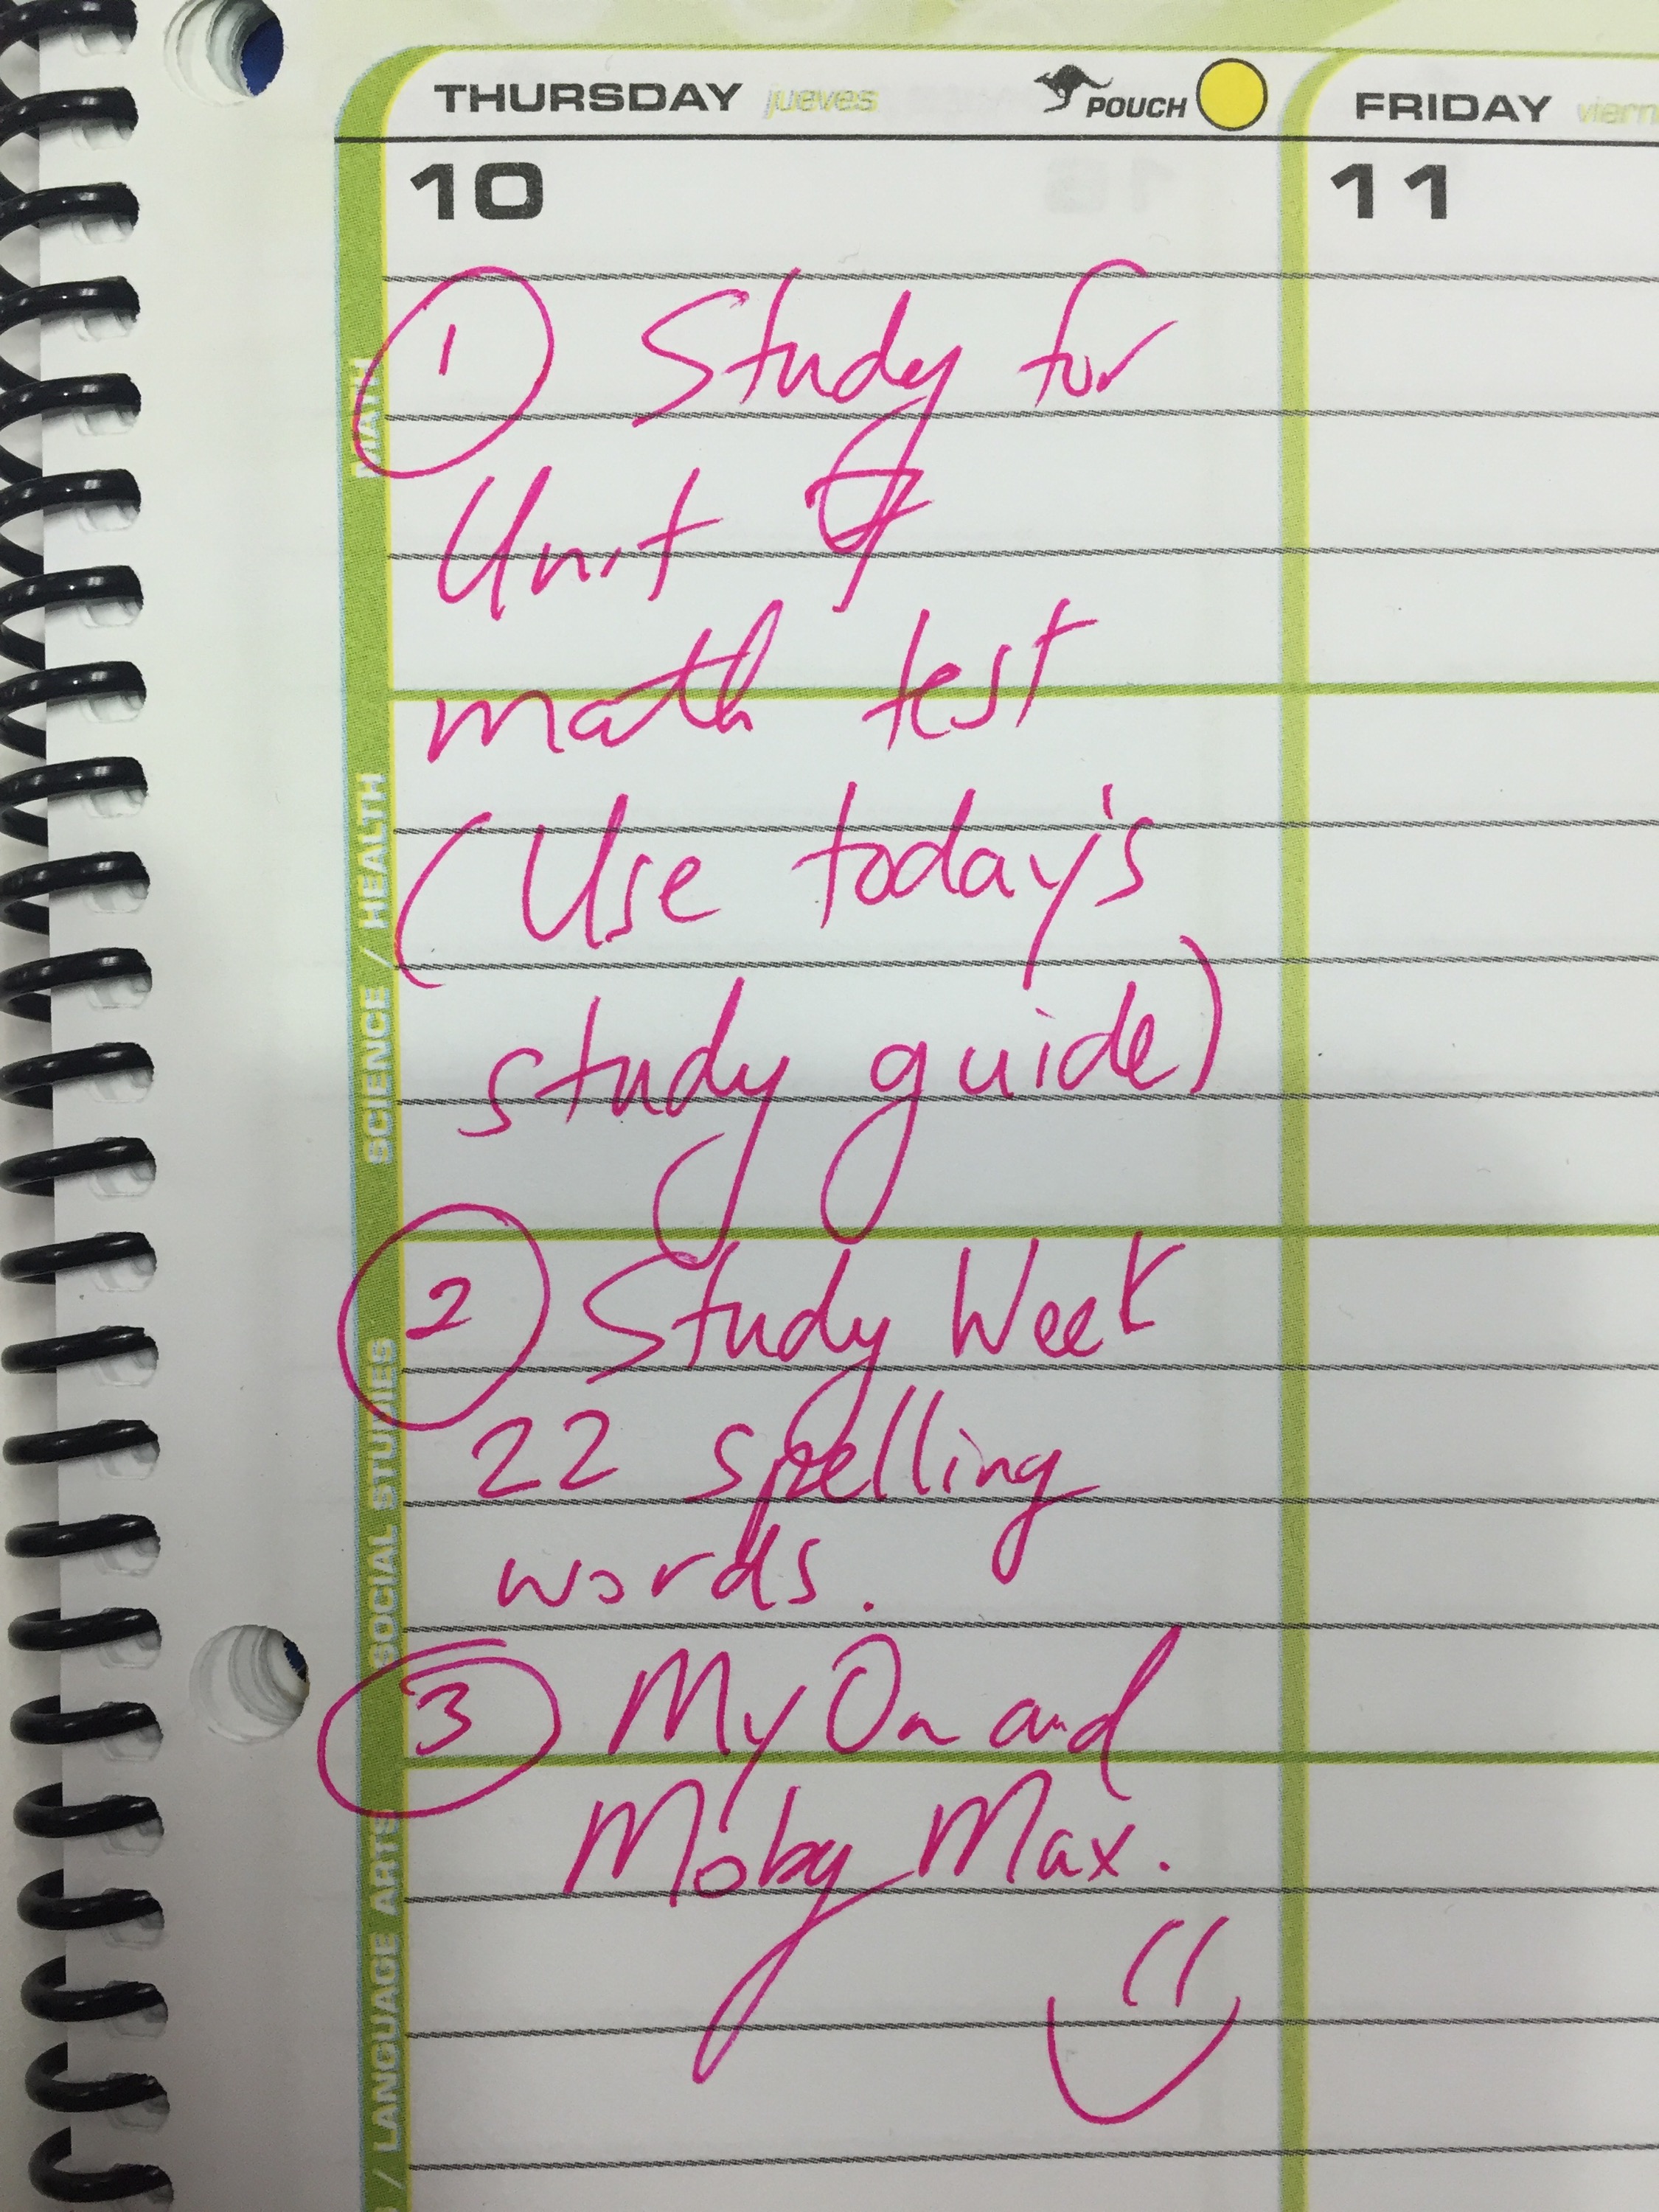 THURSDAY jueves POUCH
FRIDAY viern
10
11
MATH
SCIENCE / HEALTH
SOCIAL STUDIES
/ LANGUAGE ARTS
1 Study for
Unit 7
math test
(Use today's
study guide)
2 Study Week
22 spelling
words.
3 My On and
Moby Max.